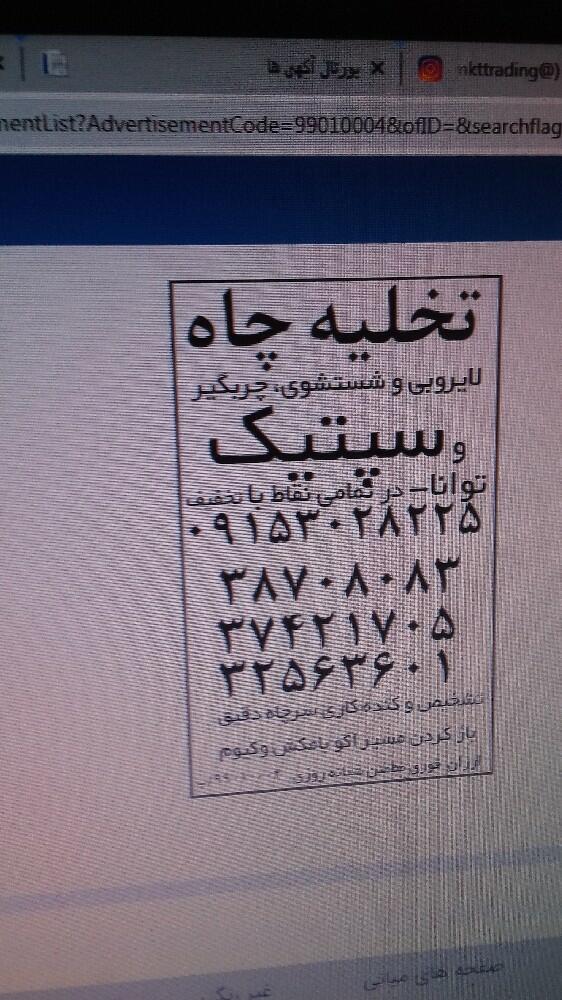 پورتال آگهی ها
nkttrading@)
mentList?AdvertisementCode=99010004&ofID=&searchflag
تخلیه چاه
لایروبی و شستشوی، چربگیر
و سپتیک
توانا- در تمامی نقاط با تخفیف
۰۹۱۵۳۰۲۸۲۲۵
۳۸۷۰۸۰۸۳
۳۷۴۲۱۷۰۵
۳۲۵۶۳۶۰۱
تشخیص و کنده کاری سرچاه دقیق
باز کردن مسیر اگو بامکش وکیوم
ارزان فوری شبانه روزی
صفحه های میانی